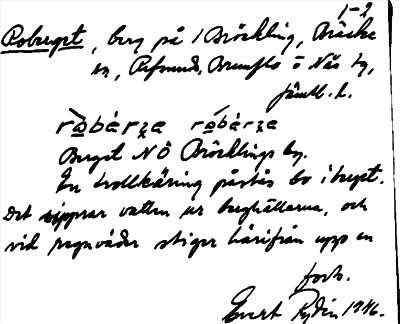 1-2
Roberget, berg på 1 Bröckling, Bräcke
sn, Refsund, Brunflo o Näs tg,
Jämtl. l.
ròbæ̀rʒe  ròbærʒe
Berget NÖ Bröcklings by.
En trollkäring påstås bo i berget.
Det sipprar vatten ur berghällarna, och
vid regnväder stiger härifrån upp en
forts.
Evert Rydin 1946.